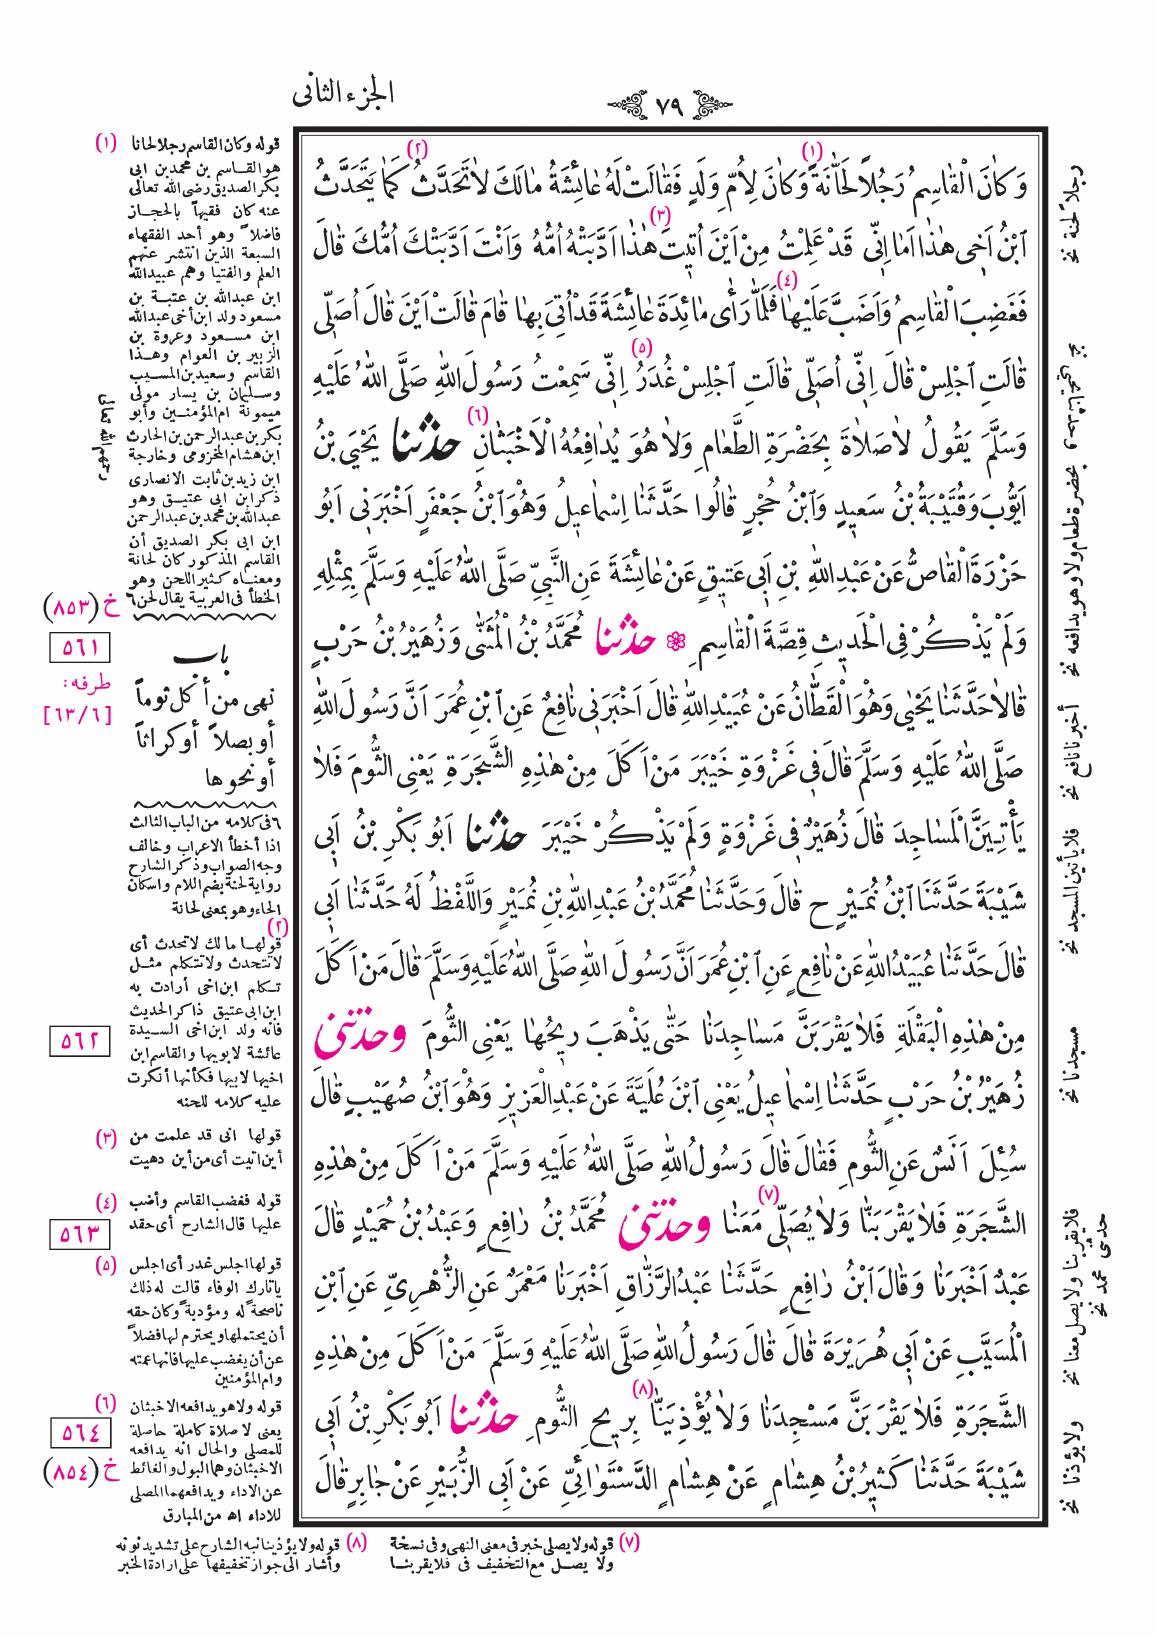 الجزء الثانى
٧٩
وَكَانَ الْقَاسِمُ رَجُلاً لَحَّانَةً (١) وَكَانَ لِأُمِّ وَلَدٍ فَقَالَتْ لَهُ عَائِشَةُ مَالَكَ لاَ تَحَدَّثُ (٢) كَمَا يَتَحَدَّثُ
ابْنُ اَخِى هٰذَا اَمَا اِنِّى قَدْ عَلِمْتُ مِنْ اَيْنَ اُتِيتَ (٣) هٰذَا اَدَّبَتْهُ اُمُّهُ وَاَنْتَ اَدَّبَتْكَ اُمُّكَ قَالَ
فَغَضِبَ الْقَاسِمُ وَاَضَبَّ عَلَيْهَا (٤) فَلَمَّا رَأٰى مَائِدَةَ عَائِشَةَ قَدْ اُتِىَ بِهَا قَامَ قَالَتْ اَيْنَ قَالَ اُصَلِّى
قَالَتِ اجْلِسْ قَالَ اِنِّى اُصَلِّى قَالَتِ اجْلِسْ غُدَرُ (٥) اِنِّى سَمِعْتُ رَسُولَ اللهِ صَلَّى اللهُ عَلَيْهِ
وَسَلَّمَ يَقُولُ لاَ صَلاَةَ بِحَضْرَةِ الطَّعَامِ وَلاَ هُوَ يُدَافِعُهُ الْاَخْبَثَانِ (٦) حدثنا يَحْيَى بْنُ
اَيُّوبَ وَقُتَيْبَةُ بْنُ سَعِيدٍ وَابْنُ حُجْرٍ قَالُوا حَدَّثَنَا اِسْمَاعِيلُ وَهُوَ ابْنُ جَعْفَرٍ اَخْبَرَنِى اَبُو
حَزْرَةَ الْقَاصُّ عَنْ عَبْدِ اللهِ بْنِ اَبِى عَتِيقٍ عَنْ عَائِشَةَ عَنِ النَّبِىِّ صَلَّى اللهُ عَلَيْهِ وَسَلَّمَ بِمِثْلِهِ
وَلَمْ يَذْكُرْ فِى الْحَدِيثِ قِصَّةَ الْقَاسِمِ حدثنا مُحَمَّدُ بْنُ الْمُثَنَّى وَزُهَيْرُ بْنُ حَرْبٍ
قَالاَ حَدَّثَنَا يَحْيٰى وَهُوَ الْقَطَّانُ عَنْ عُبَيْدِ اللهِ قَالَ اَخْبَرَنِى نَافِعٌ عَنِ ابْنِ عُمَرَ اَنَّ رَسُولَ اللهِ
صَلَّى اللهُ عَلَيْهِ وَسَلَّمَ قَالَ فِى غَزْوَةِ خَيْبَرَ مَنْ اَكَلَ مِنْ هٰذِهِ الشَّجَرَةِ يَعْنِى الثُّومَ فَلاَ
يَأْتِيَنَّ الْمَسَاجِدَ قَالَ زُهَيْرٌ فِى غَزْوَةٍ وَلَمْ يَذْكُرْ خَيْبَرَ حدثنا اَبُو بَكْرِ بْنُ اَبِى
شَيْبَةَ حَدَّثَنَا ابْنُ نُمَيْرٍ ح قَالَ وَحَدَّثَنَا مُحَمَّدُ بْنُ عَبْدِ اللهِ بْنِ نُمَيْرٍ وَاللَّفْظُ لَهُ حَدَّثَنَا اَبِى
قَالَ حَدَّثَنَا عُبَيْدُ اللهِ عَنْ نَافِعٍ عَنِ ابْنِ عُمَرَ اَنَّ رَسُولَ اللهِ صَلَّى اللهُ عَلَيْهِ وَسَلَّمَ قَالَ مَنْ اَكَلَ
مِنْ هٰذِهِ الْبَقْلَةِ فَلاَ يَقْرَبَنَّ مَسَاجِدَنَا حَتّٰى يَذْهَبَ رِيحُهَا يَعْنِى الثُّومَ وحدثنى
زُهَيْرُ بْنُ حَرْبٍ حَدَّثَنَا اِسْمَاعِيلُ يَعْنِى ابْنَ عُلَيَّةَ عَنْ عَبْدِ الْعَزِيزِ وَهُوَ ابْنُ صُهَيْبٍ قَالَ
سُئِلَ اَنَسٌ عَنِ الثُّومِ فَقَالَ قَالَ رَسُولُ اللهِ صَلَّى اللهُ عَلَيْهِ وَسَلَّمَ مَنْ اَكَلَ مِنْ هٰذِهِ
الشَّجَرَةِ فَلاَ يَقْرَبَنَّا وَلاَ يُصَلِّى (٧) مَعَنَا وحدثنى مُحَمَّدُ بْنُ رَافِعٍ وَعَبْدُ بْنُ حُمَيْدٍ قَالَ
عَبْدٌ اَخْبَرَنَا وَقَالَ ابْنُ رَافِعٍ حَدَّثَنَا عَبْدُ الرَّزَّاقِ اَخْبَرَنَا مَعْمَرٌ عَنِ الزُّهْرِىِّ عَنِ ابْنِ
الْمُسَيَّبِ عَنْ اَبِى هُرَيْرَةَ قَالَ قَالَ رَسُولُ اللهِ صَلَّى اللهُ عَلَيْهِ وَسَلَّمَ مَنْ اَكَلَ مِنْ هٰذِهِ
الشَّجَرَةِ فَلاَ يَقْرَبَنَّ مَسْجِدَنَا وَلاَ يُؤْذِيَنَّا (٨) بِرِيحِ الثُّومِ حدثنا اَبُو بَكْرِ بْنُ اَبِى
شَيْبَةَ حَدَّثَنَا كَثِيرُ بْنُ هِشَامٍ عَنْ هِشَامٍ الدَّسْتَوَائِىِّ عَنْ اَبِى الزُّبَيْرِ عَنْ جَابِرٍ قَالَ
(١) قوله وكان القاسم رجلا لحانا
هو القاسم بن محمد بن ابى
بكر الصديق رضى الله تعالى
عنه كان فقيهاً بالحجاز
فاضلاً وهو أحد الفقهاء
السبعة الذين انتشر عنهم
العلم والفتيا وهم عبيدالله
ابن عبدالله بن عتبة بن
مسعود ولد ابن أخى عبدالله
ابن مسعود وعروة بن
الزبير بن العوام وهذا
القاسم وسعيد بن المسيب
وسليمان بن يسار مولى
ميمونة ام المؤمنين وأبو
بكر بن عبد الرحمن بن الحارث
ابن هشام المخزومى وخارجة
ابن زيد بن ثابت الانصارى
ذكر ابن ابى عتيق وهو
عبدالله بن محمد بن عبد الرحمن
ابن ابى بكر الصديق أن
القاسم المذكور كان لحانة
ومعناه كثير اللحن وهو
الخطأ فى العربية يقال لحن ٦
رحمهم الله تعالى
خ (٨٥٣)
٥٦١
طرفه:
[٦٣/٦]
باب
نهى من أكل ثوماً
أو بصلاً أو كراثاً
أو نحوها
٦ فى كلامه من الباب الثالث
اذا أخطأ الاعراب وخالف
وجه الصواب وذكر الشارح
رواية لحنة بضم اللام واسكان
الحاء وهو بمعنى لحانة
(٢)
قولها ما لك لا تحدث أى
لا تتحدث ولا تتكلم مثل
تكلم ابن اخى أرادت به
ابن ابى عتيق ذاكر الحديث
فانه ولد ابن اخى السيدة
عائشة لابويها والقاسم ابن
اخيها لابيها فكأنها أنكرت
عليه كلامه للحنه
٥٦٢
(٣) قولها انى قد علمت من
أين اتيت أى من أين دهيت
(٤) قوله فغضب القاسم وأضب
عليها قال الشارح أى حقد
٥٦٣
(٥) قولها اجلس غدر أى اجلس
يا تارك الوفاء قالت له ذلك
ناصحةً له ومؤدبةً وكان حقه
أن يحتملها ويحترم لها فضلاً
عن أن يغضب عليها فانها عمته
وام المؤمنين
(٦) قوله ولا هو يدافعه الاخبثان
يعنى لا صلاة كاملة حاصلة
للمصلى والحال انه يدافعه
الاخبثان وهما البول والغائط
عن الاداء ويدافعهما المصلى
للاداء اه من المبارق
٥٦٤
خ (٨٥٤)
رجلا لحنة نخ
بحضرة طعام ولا وهو يدافعه نخ
أخبرنا نافع نخ
فلا يأتين المسجد نخ
مسجدنا نخ
فلا يقربنا ولا يصل معنا نخ
حدثنى محمد نخ
ولا يؤذنا نخ
(٧) قوله ولا يصلى خبر فى معنى النهى وفى نسخة
ولا يصل مع التخفيف فى فلا يقربنا
(٨) قوله ولا يؤذينا نبه الشارح على تشديد نونه
وأشار الى جواز تخفيفها على ارادة الخبر